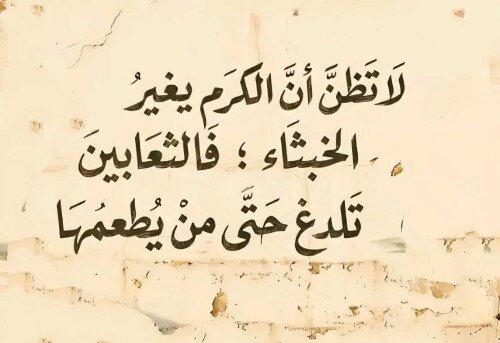 لَا تَظنَّ أنَّ الكرَم يغيرُ
الخبثَاء ؛ فَالثعَابينَ
تَلدغ حَتَّى منْ يُطعمُهَا